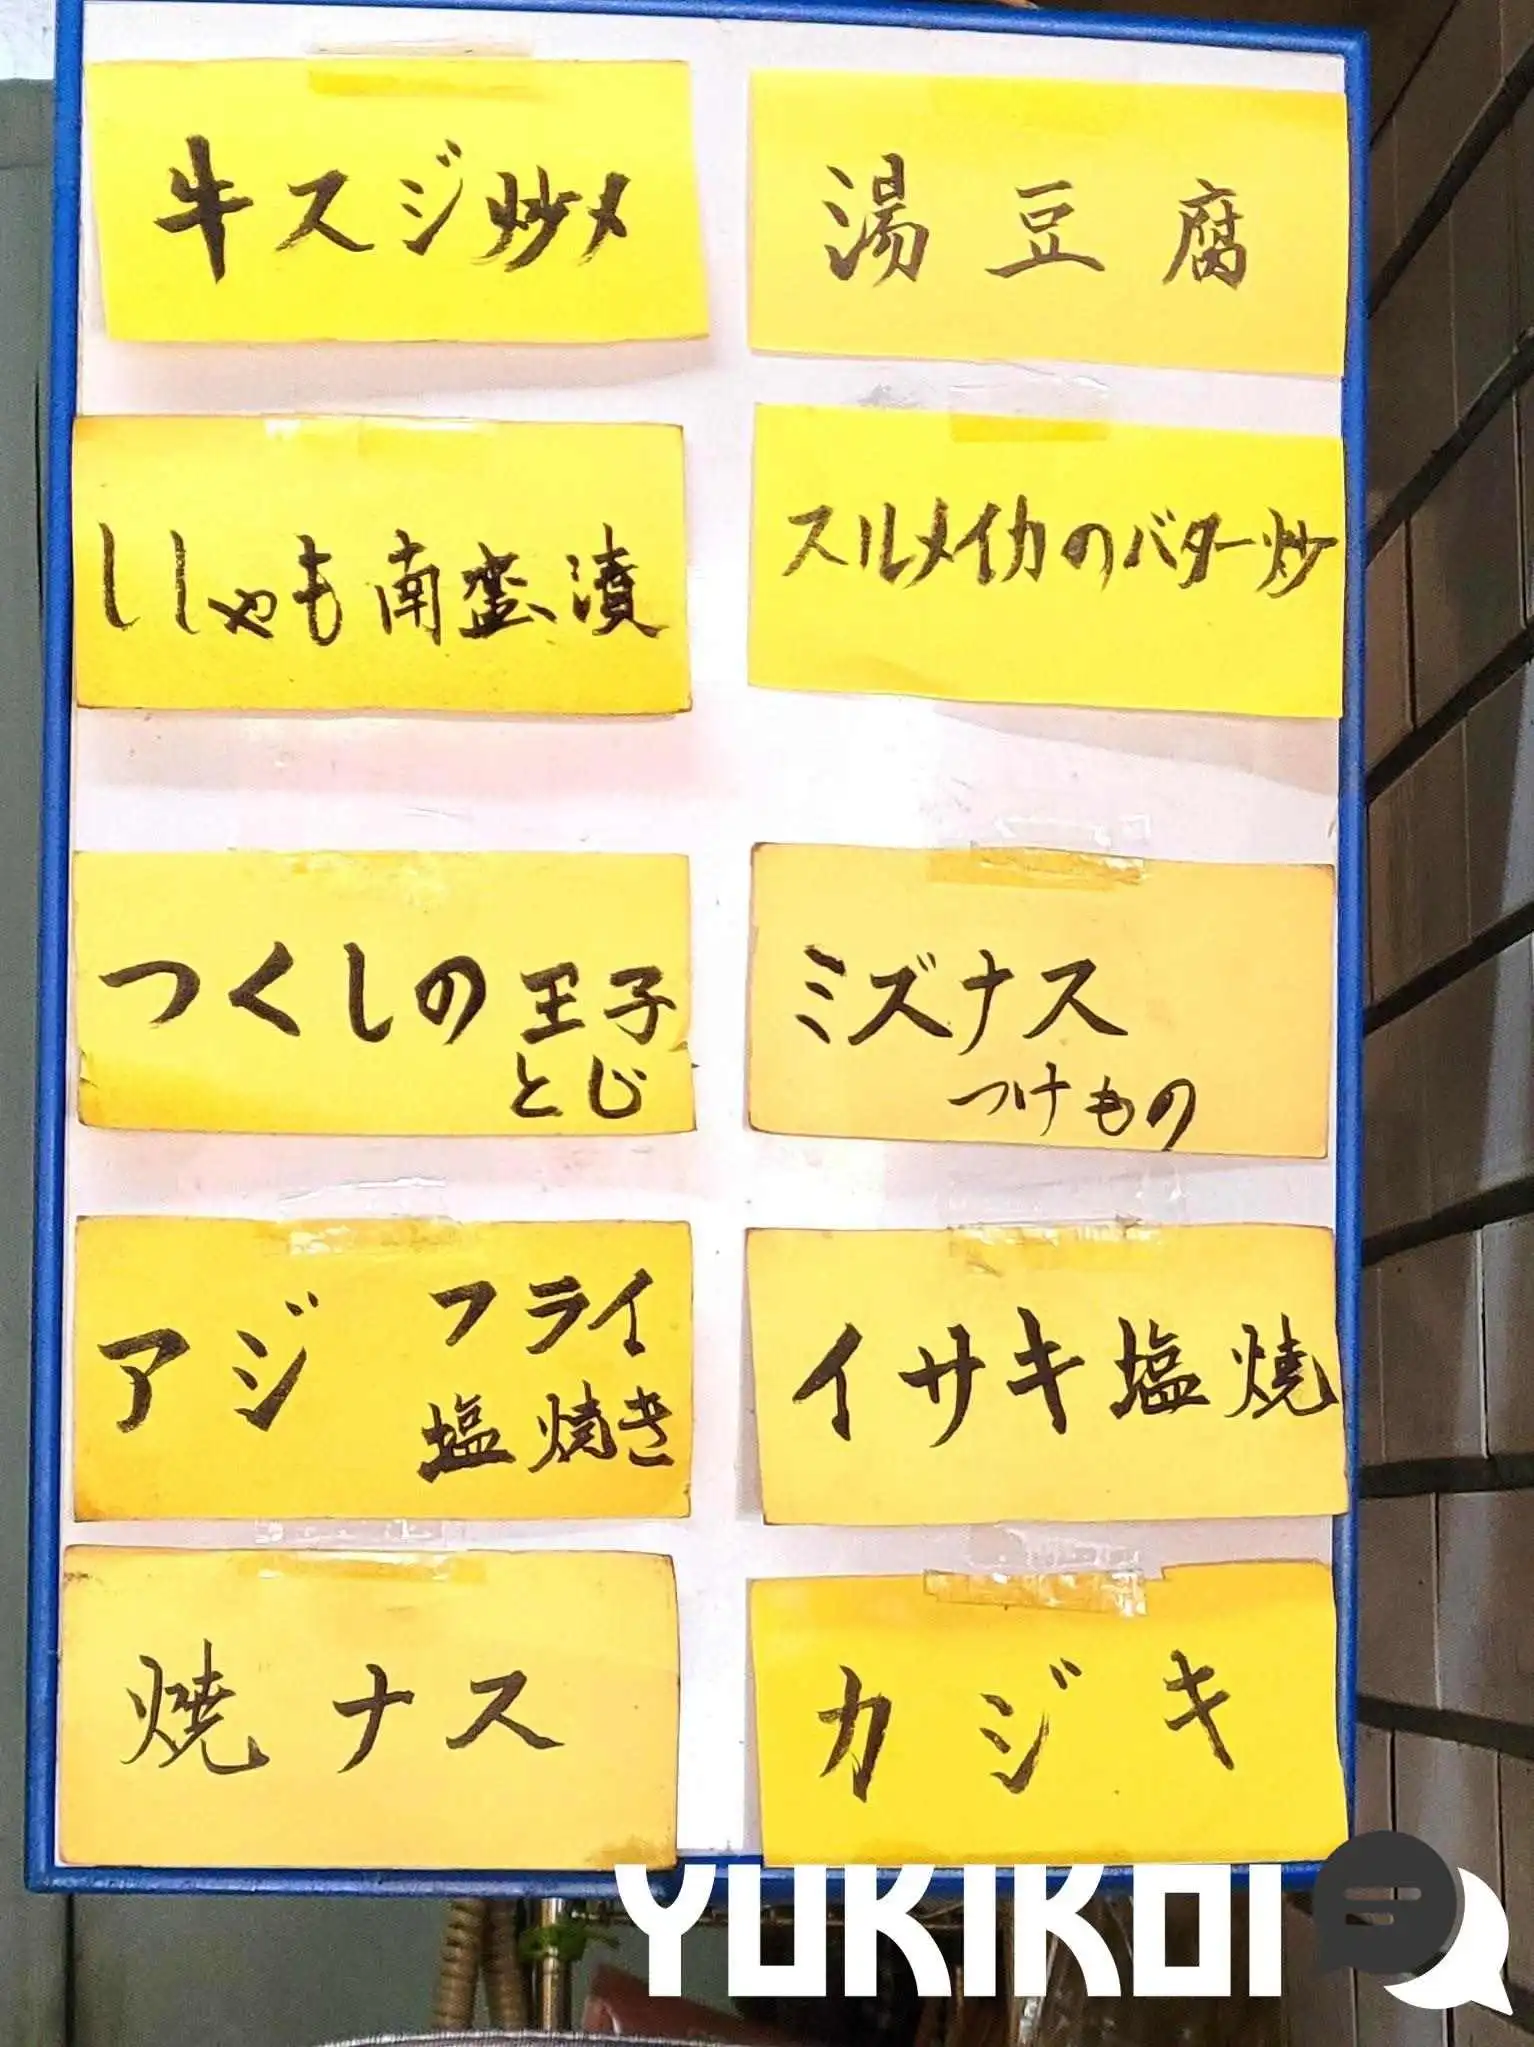 牛スジ炒メ
湯豆腐
ししゃも南蛮漬
スルメイカのバター炒
つくしの王子
とじ
ミズナス
つけもの
アジ
フライ
塩焼き
イサキ塩焼
焼ナス
カジキ
YUKIKOI